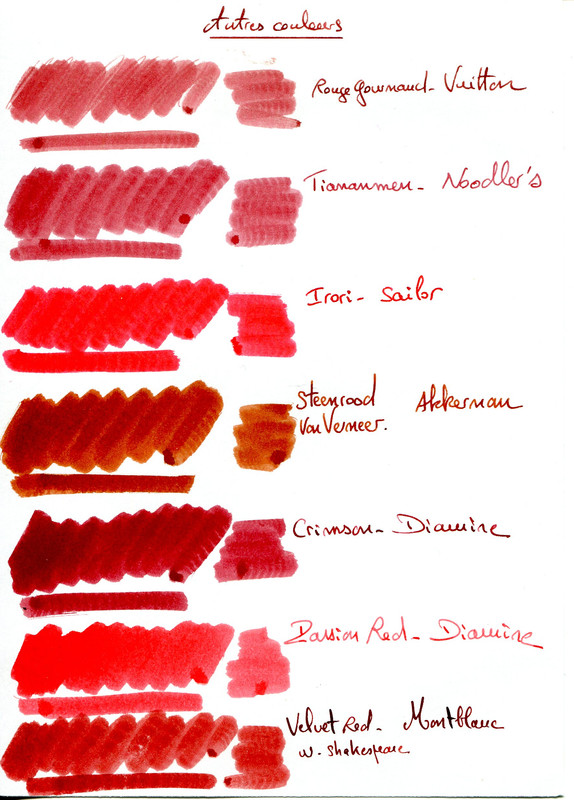 Autres couleurs
Rouge Gourmand - Vuitton
Tiananmen - Noodler's
Irori - Sailor
Steenrood Akkerman
Van Vermeer.
Crimson - Diamine
Passion Red - Diamine
Velvet Red - Montblanc
W. Shakespeare